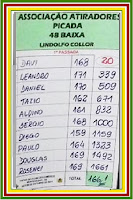 ASSOCIAÇÃO ATIRADORES
PICADA
48 BAIXA
LINDOLFO COLLOR
1ª PASSADA
DAVI 168 20
LEANDRO 171 339
DANIEL 170 509
TAZIO 162 671
ALDINO 161 832
SERGIO 168 1000
DIEGO 159 1159
PAULO 164 1323
DOUGLAS 169 1492
ROSENEI 169 1661
TOTAL 1661